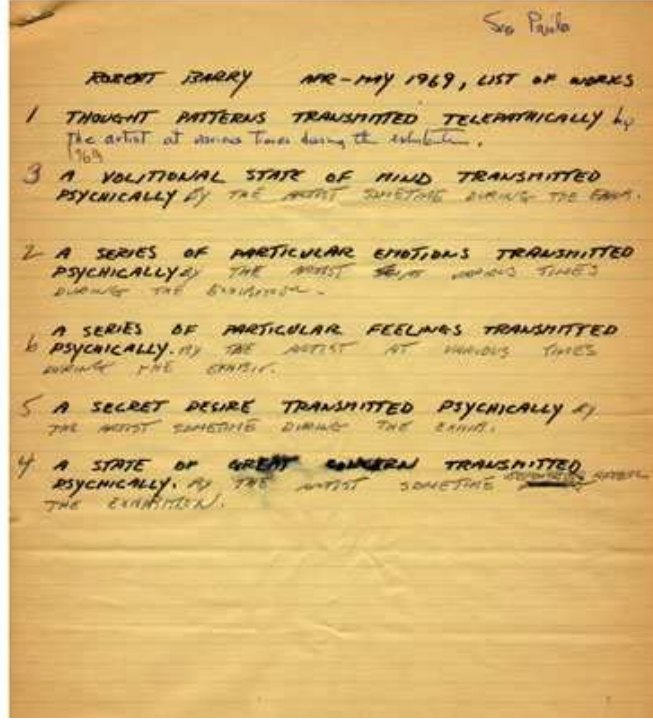 Sao Paulo
ROBERT BARRY APR-MAY 1969, LIST OF WORKS
1 THOUGHT PATTERNS TRANSMITTED TELEPATHICALLY by
the artist at various times during the exhibition.
1969
3 A VOLITIONAL STATE OF MIND TRANSMITTED
PSYCHICALLY BY THE ARTIST SOMETIME DURING THE EXHIB.
2 A SERIES OF PARTICULAR EMOTIONS TRANSMITTED
PSYCHICALLY BY THE ARTIST AT VARIOUS TIMES
DURING THE EXHIBITION.
A SERIES OF PARTICULAR FEELINGS TRANSMITTED
6 PSYCHICALLY. BY THE ARTIST AT VARIOUS TIMES
DURING THE EXHIBIT.
5 A SECRET DESIRE TRANSMITTED PSYCHICALLY BY
THE ARTIST SOMETIME DURING THE EXHIB.
4 A STATE OF GREAT CONCERN TRANSMITTED
PSYCHICALLY. BY THE ARTIST SOMETIME
THE EXHIBITION.